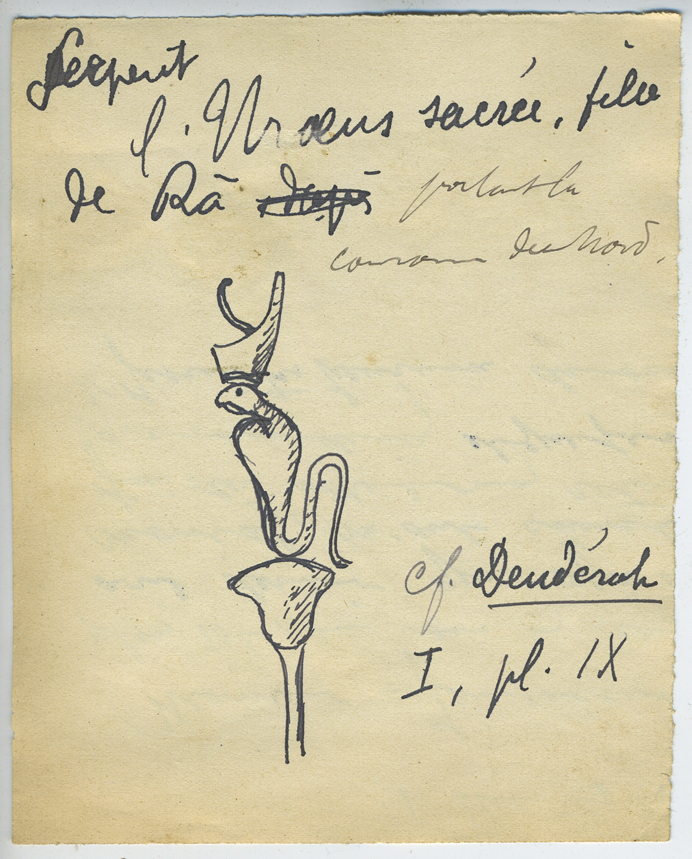 Serpent
l'Uraeus sacrée, fille
de Râ portant la
couronne du Nord.
cf. Dendérah
I, pl. IX